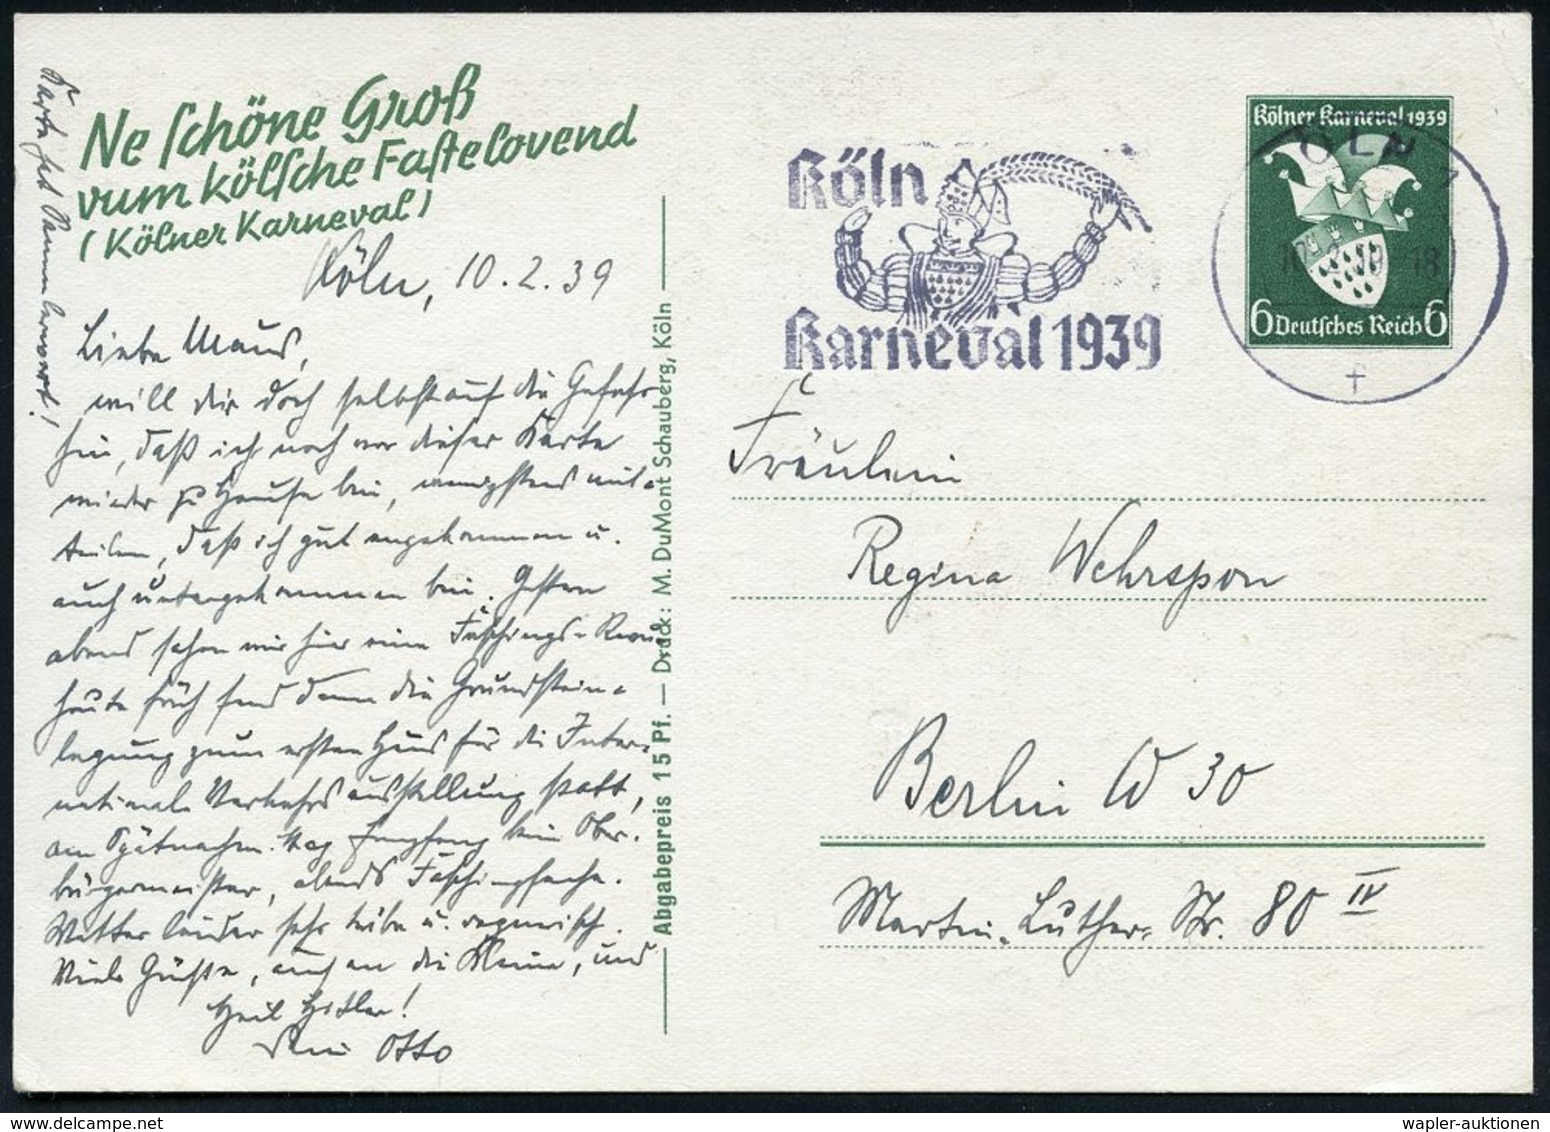 Ne schöne Groß
vum kölsche Fastelovend
(Kölner Karneval)
Köln, 10.2.39
Liebe Maus,
will dir doch selbst auf die Gefahr
hin, daß ich noch vor dieser Karte
wieder zu Hause bin, wenigstens mit-
teilen, daß ich gut angekommen u.
auch untergekommen bin. Gestern
abend sahen wir hier eine Faschings-Revue,
heute früh fand dann die Grundstein-
legung zum ersten Haus für die Inter-
national. Verkehrsausstellung statt,
am Spätnachm. Empfang beim Ober-
bürgermeister, abends
Wetter leider sehr trübe u. regnerisch.
Viele Grüße, auch an die Kleine, und
Heil Hitler!
Dein Otto
Karte hat
Abgabepreis 15 Pf. — Druck: M. DuMont Schauberg, Köln
Köln
Karneval 1939
Kölner Karneval 1939
KÖLN 1
10.2.39 18
6 Deutsches Reich 6
Fräulein
Regina Wehrspon
Berlin W 30
Martin-Luther-Str. 80 IV
wapler-auktionen